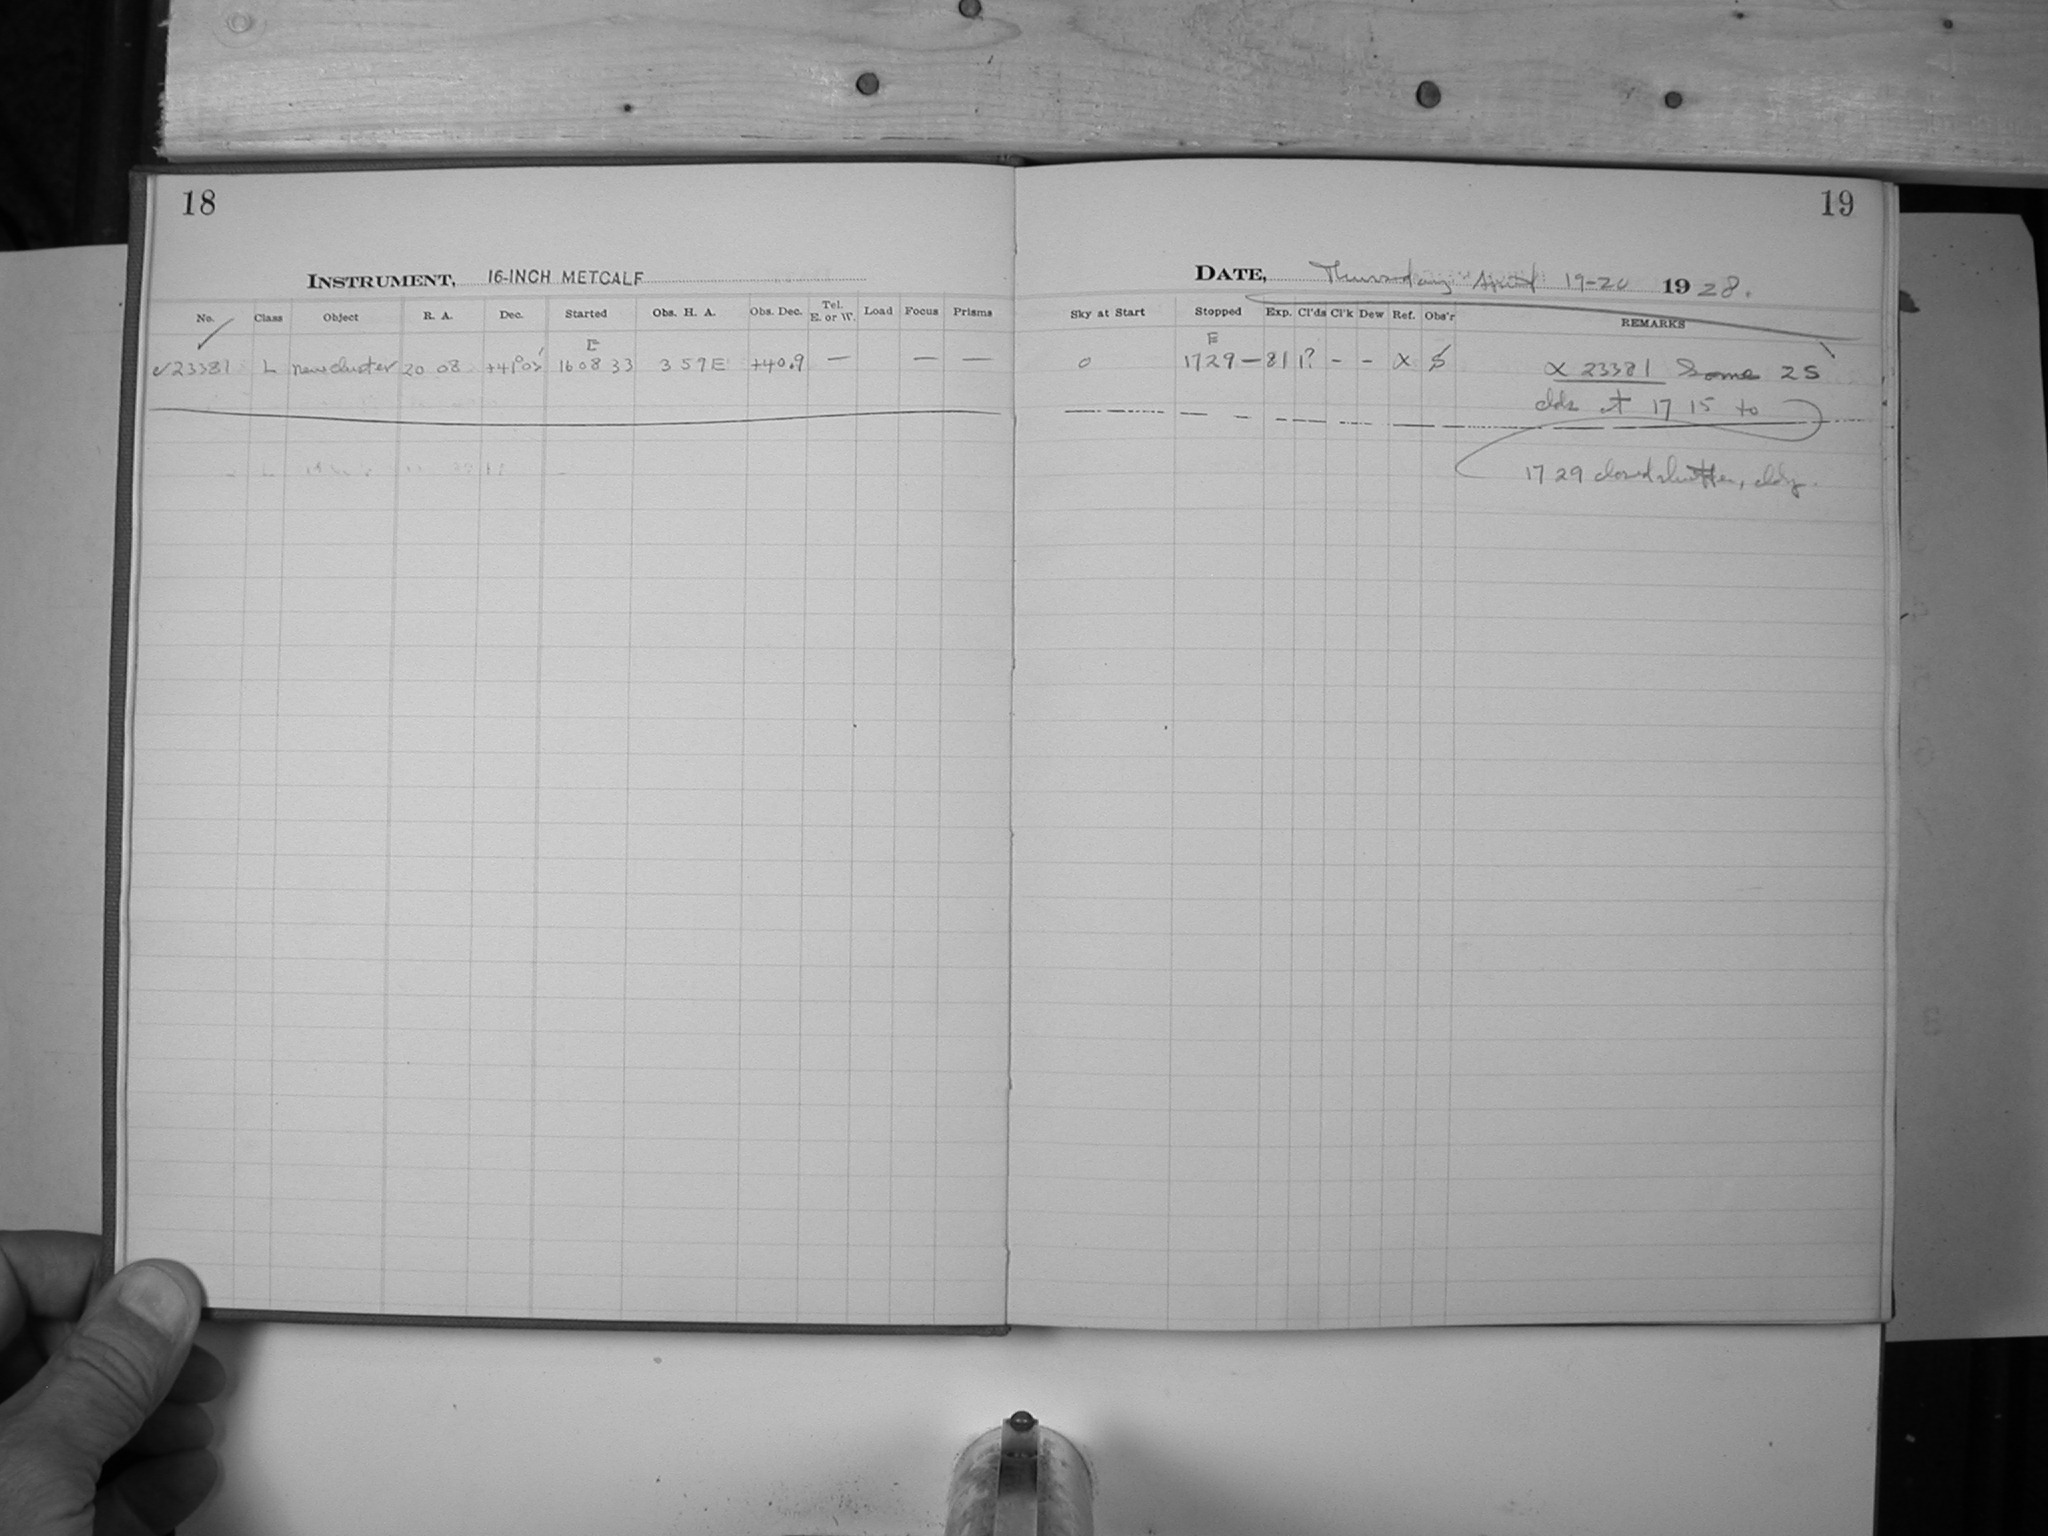 18
INSTRUMENT, 16-INCH METCALF
No. Class Object R. A. Dec. Started Obs. H. A. Obs. Dec. Tel. E. or W. Load Focus Prisms
E
✓23381 L new cluster 20 08 +41°03' 16 08 33 3 59 E +40.9 — — —
19
DATE, Thursday April 19-20 1928.
Sky at Start Stopped Exp. Cl'ds Cl'k Dew Ref. Obs'r REMARKS
E
0 17 29 — 81 1? - - X $
X 23381 Some 2S
clds at 17 15 to
17 29 closed shutter, cldy.